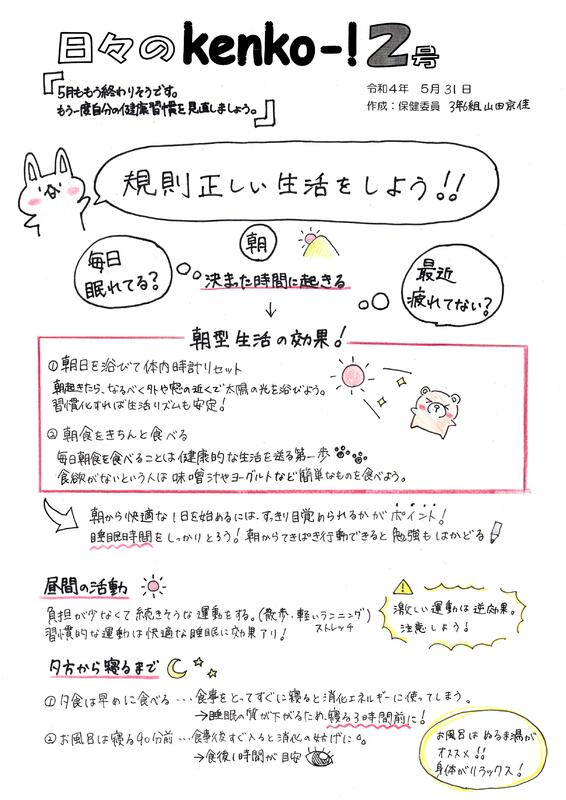 日々のkenko-!2号
5月ももう終わりそうです。
もう一度自分の健康習慣を見直しましょう。
令和4年 5月31日
作成:保健委員 3年6組 山田京佳
規則正しい生活をしよう!!
朝
毎日
眠れてる?
決まった時間に起きる
最近
疲れてない?
↓
朝型生活の効果!
①朝日を浴びて体内時計リセット
朝起きたら、なるべく外や窓の近くで太陽の光を浴びよう。
習慣化すれば生活リズムも安定!
②朝食をきちんと食べる
毎日朝食を食べることは健康的な生活を送る第一歩
食欲がないという人は味噌汁やヨーグルトなど簡単なものを食べよう。
朝から快適な1日を始めるには、すっきり目覚められるかがポイント!
睡眠時間をしっかりとろう!朝からてきぱき行動できると勉強もはかどる
昼間の活動
負担が少なくて続きそうな運動をする。(散歩・軽いランニング)
ストレッチ
習慣的な運動は快適な睡眠に効果アリ!
激しい運動は逆効果。
注意しよう!
夕方から寝るまで
①夕食は早めに食べる…食事をとってすぐに寝ると消化エネルギーに使ってしまう。
→睡眠の質が下がるため、寝る3時間前に!
②お風呂は寝る90分前…食事後すぐ入ると消化の妨げに。
→食後1時間が目安
お風呂はぬるま湯が
オススメ!!
身体がリラックス!